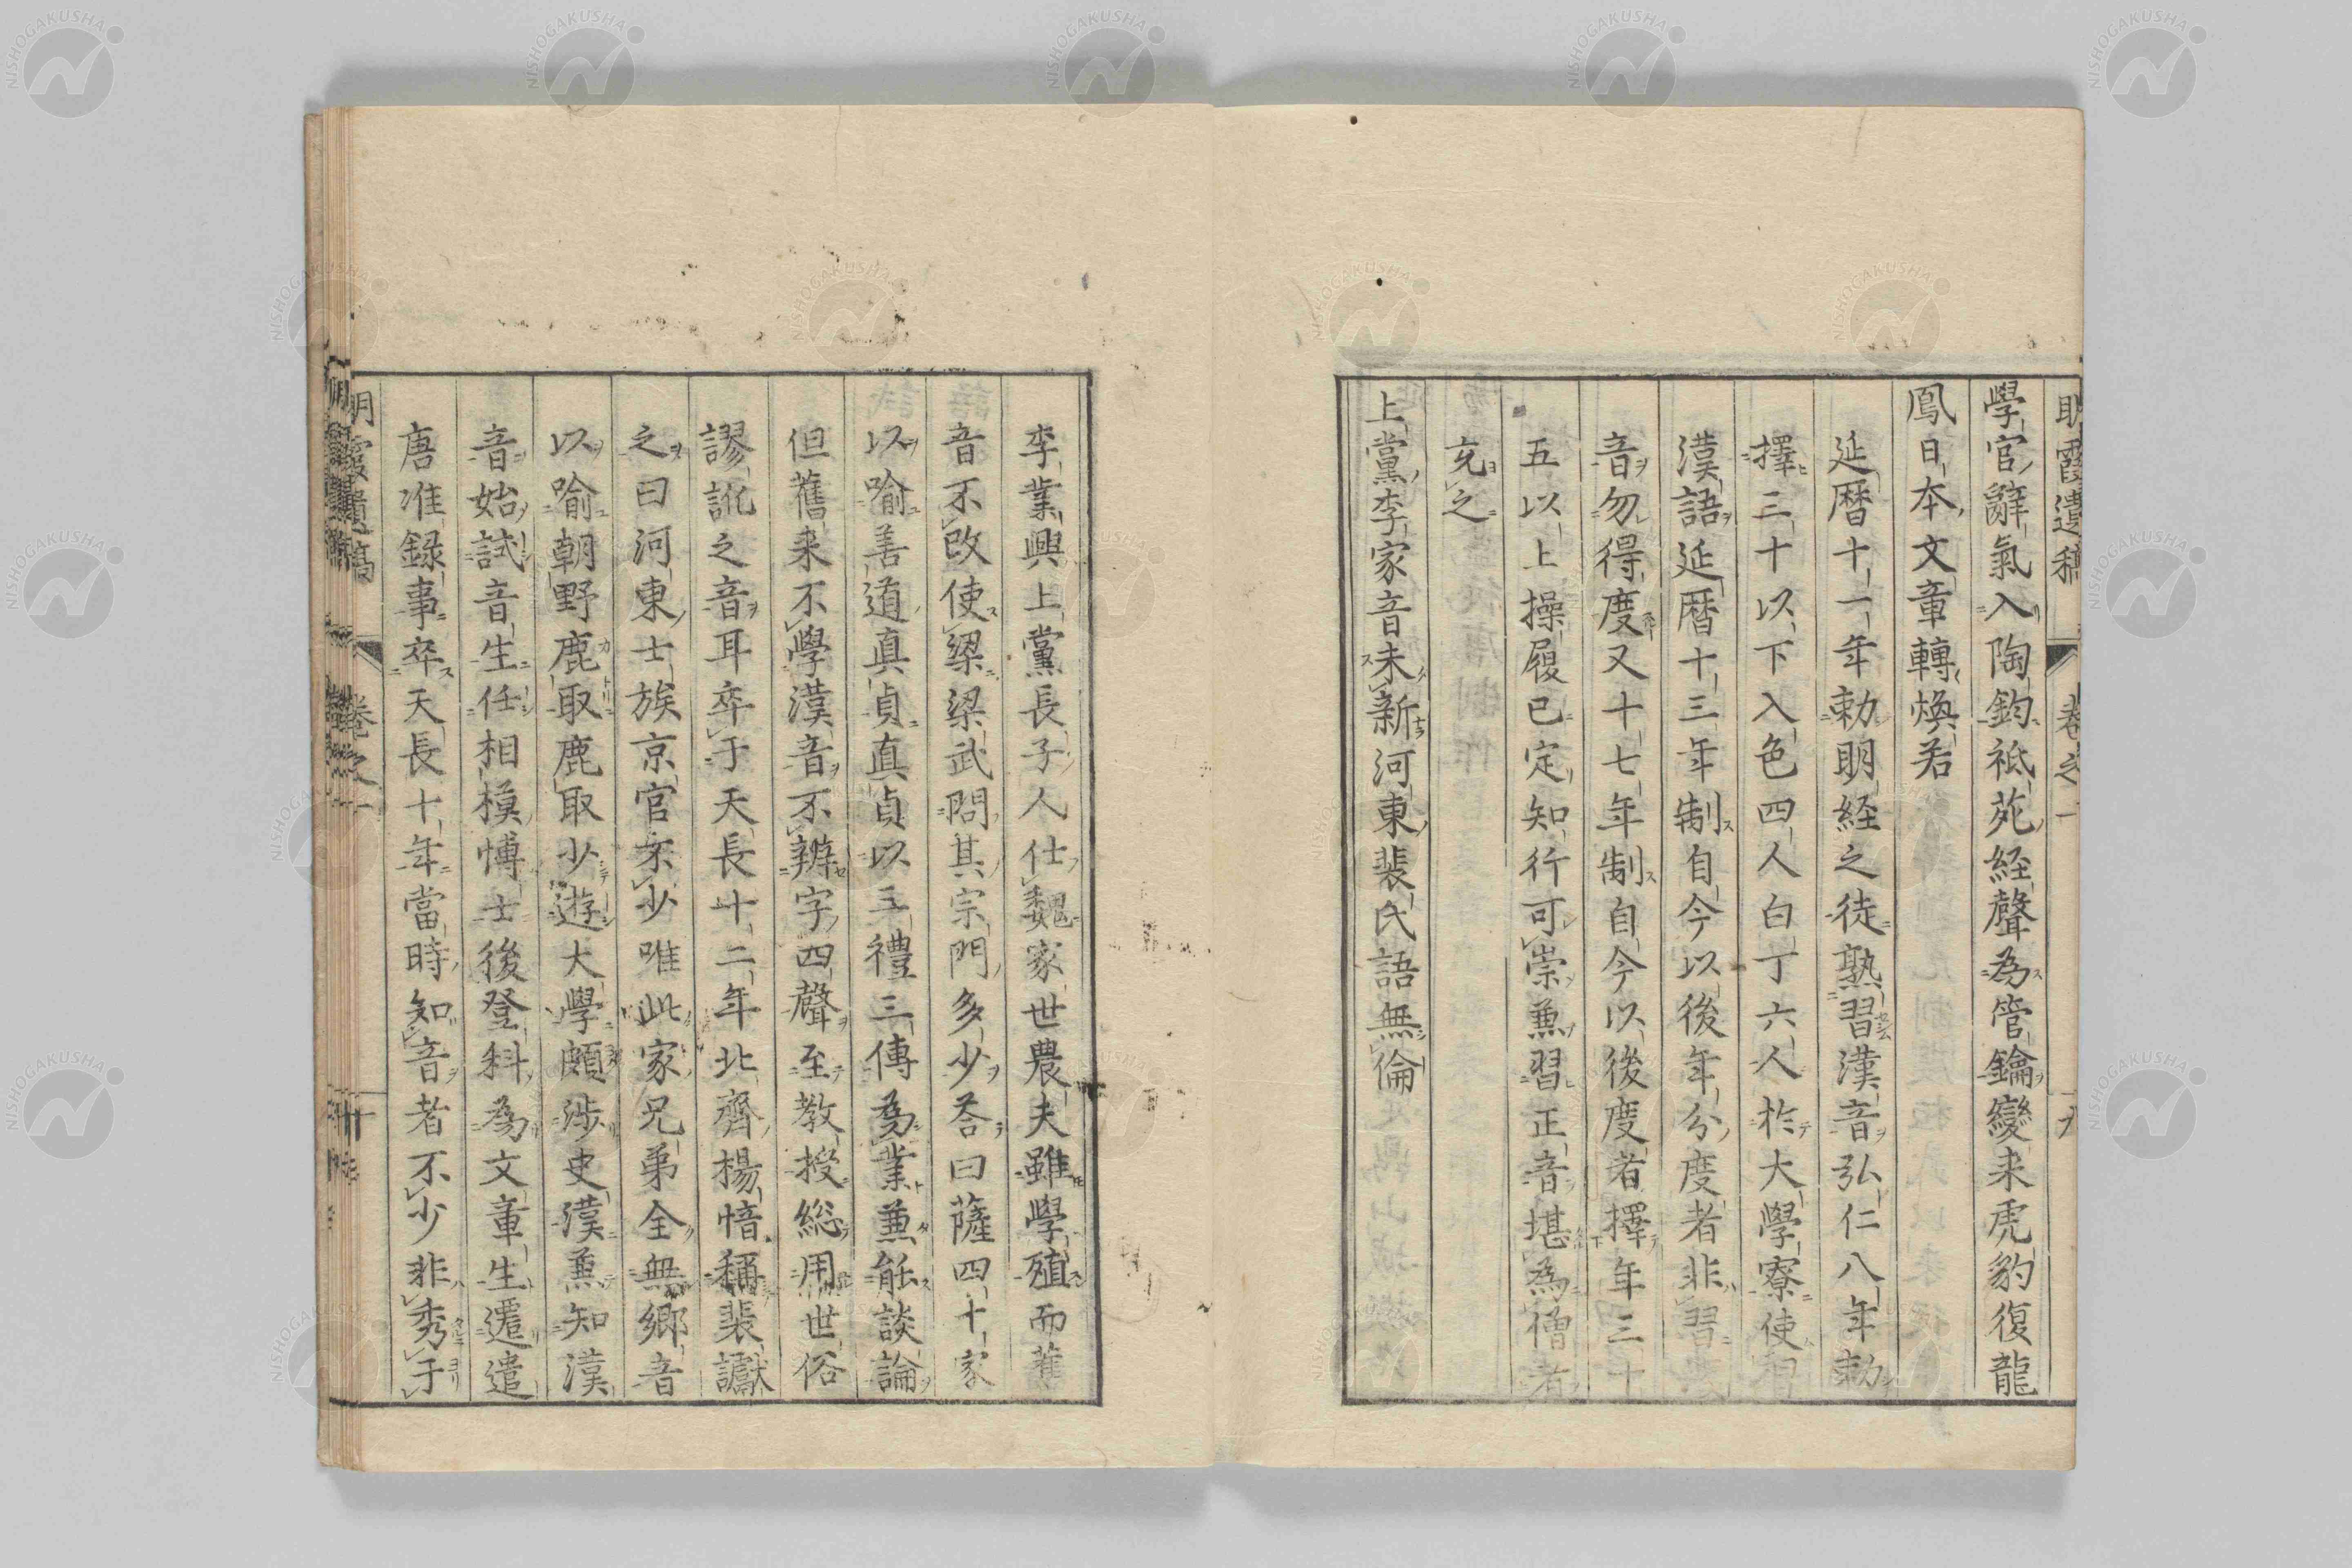 明霞遺稿 卷之一 十九
學官辭氣入陶鈞祗苑経聲為管鑰變来虎豹復龍
鳳日本文章轉煥若
延暦十一年勅明経之徒熟習漢音弘仁八年勅
擇三十以下入色四人白丁六人於大學寮使習
漢語延暦十三年制自今以後年分度者非習漢
音勿得度又十七年制自今以後度者擇年三十
五以上操履已定知行可崇兼習正音堪為僧者
充之
上黨李家音未新河東裴氏語無倫
李業興上黨長子人仕魏家世農夫雖學殖而舊
音不改使梁梁武問其宗門多少荅曰薩四十家
以喻善道真貞真貞以三禮三傳為業兼能談論
但舊来不學漢音不辨字四聲至教授総用世俗
謬訛之音耳卒于天長十二年北齊楊愔稱裴讞
之曰河東士族京官不少唯此家兄弟全無鄉音
以喻朝野鹿取鹿取少遊大學頗涉史漢兼知漢
音始試音生任相模博士後登科為文章生遷遣
唐准録事卒天長十年當時知音者不少非秀于
明霞遺稿 卷之一
NISHOGAKUSHA